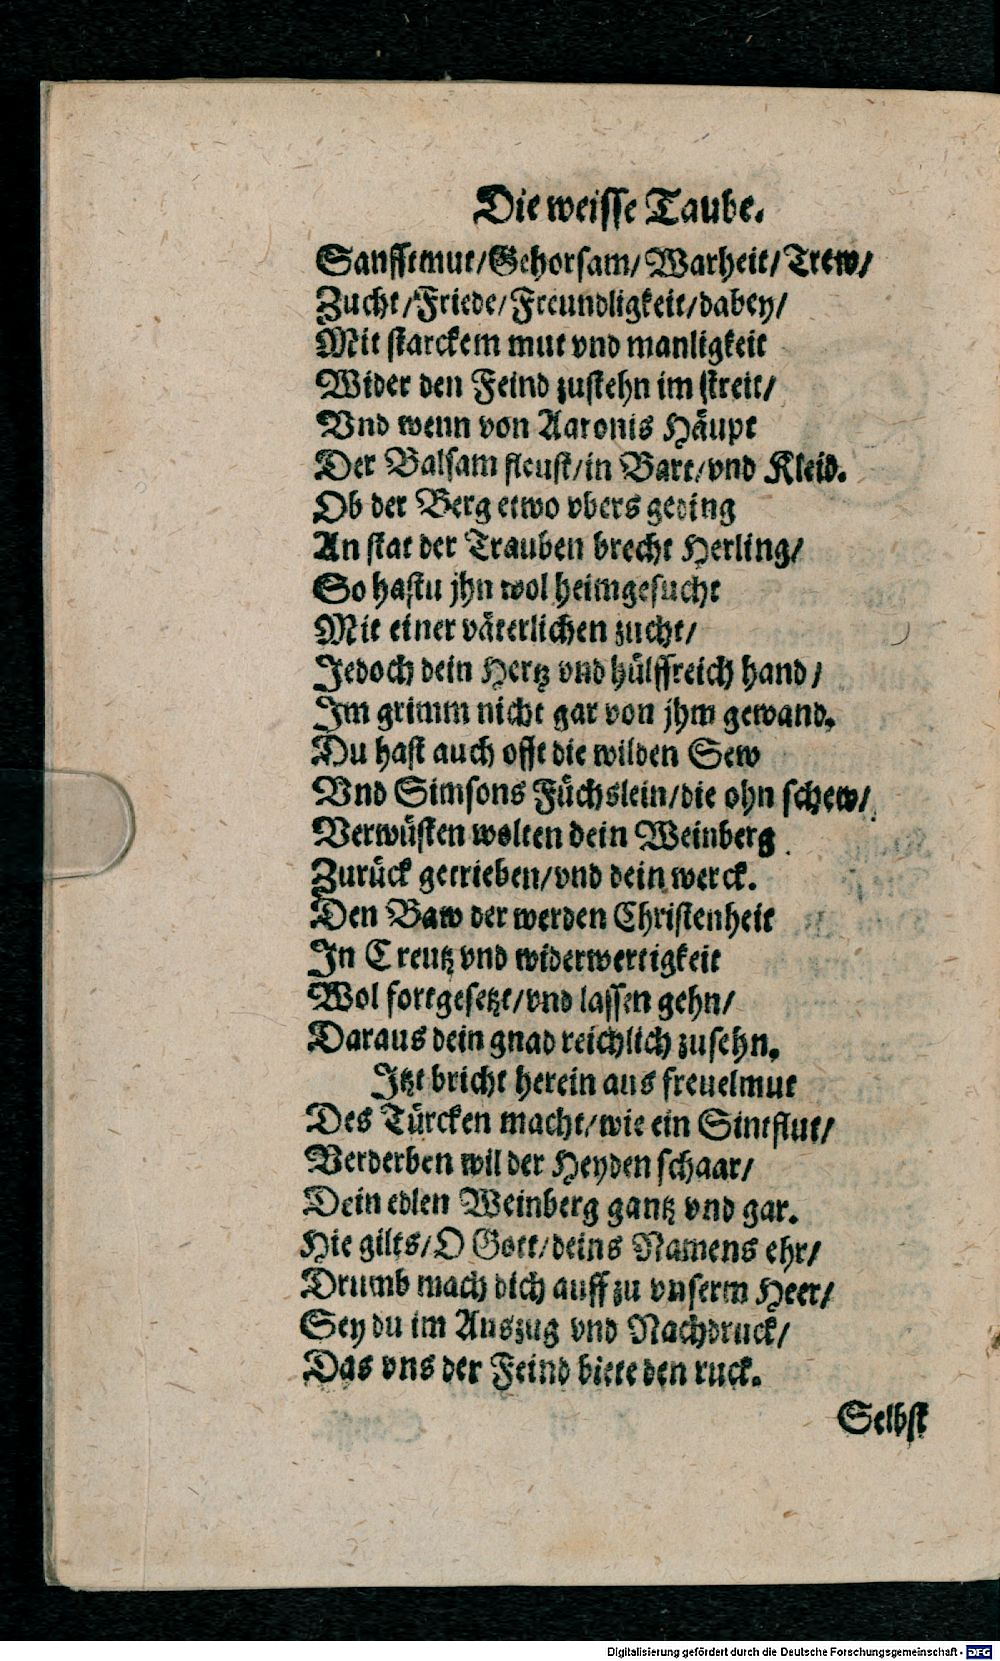 Die weisse Taube.
Sanfftmut/Gehorsam/Warheit/Trew/
Zucht/Friede/Freundligkeit/dabey/
Mit starckem mut vnd manligkeit
Wider den Feind zustehn im streit/
Vnd wenn von Aaronis Häupt
Der Balsam fleust/in Bart/vnd Kleid.
Ob der Berg etwo vbers geding
An stat der Trauben brecht Herling/
So hastu jhn wol heimgesucht
Mit einer väterlichen zucht/
Jedoch dein Hertz vnd hülffreich hand/
Im grimm nicht gar von jhm gewand.
Du hast auch offt die wilden Sew
Vnd Simsons Füchslein/die ohn schew/
Verwüsten wolten dein Weinberg
Zurück getrieben/vnd dein werck.
Den Baw der werden Christenheit
In Creutz vnd widerwertigkeit
Wol fortgesetzt/vnd lassen gehn/
Daraus dein gnad reichlich zusehn.
Jtzt bricht herein aus freuelmut
Des Türcken macht/wie ein Sintflut/
Verderben wil der Heyden schaar/
Dein edlen Weinberg gantz vnd gar.
Hie gilts/O Gott/deins Namens ehr/
Drumb mach dich auff zu vnserm Heer/
Sey du im Auszug vnd Nachdruck/
Das vns der Feind biete den ruck.
Selbst
Digitalisierung gefördert durch die Deutsche Forschungsgemeinschaft - DFG